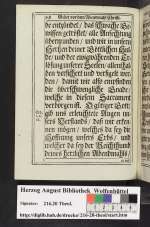 Gebet vor dem Abendmahl Christi.
de entzündet / das schwache Ge-
wissen getröstet, alle Anfechtung
überwunden / und wir in unserm
Hertzen deiner Göttlichen Hul-
de / und der ewigwerenden Er-
lösung unserer Seelen allenthal-
ben versichert und verwahret wer-
den / damit wir also empfinden
die überschwengliche Gnade /
welche in diesem Sacrament
verborgen ist. O gütiger Gott
gib uns erleuchtete Augen un-
sers Verstands / daß wir erken-
nen mögen / welches da sey die
Hoffnung unsers Lebens / und
welcher da sey der Reichthumb
deines herrlichen Abendmals /
Herzog August Bibliothek Wolfenbüttel
Signatur: 216.20 Theol.
http://diglib.hab.de/drucke/216-20-theol/start.htm